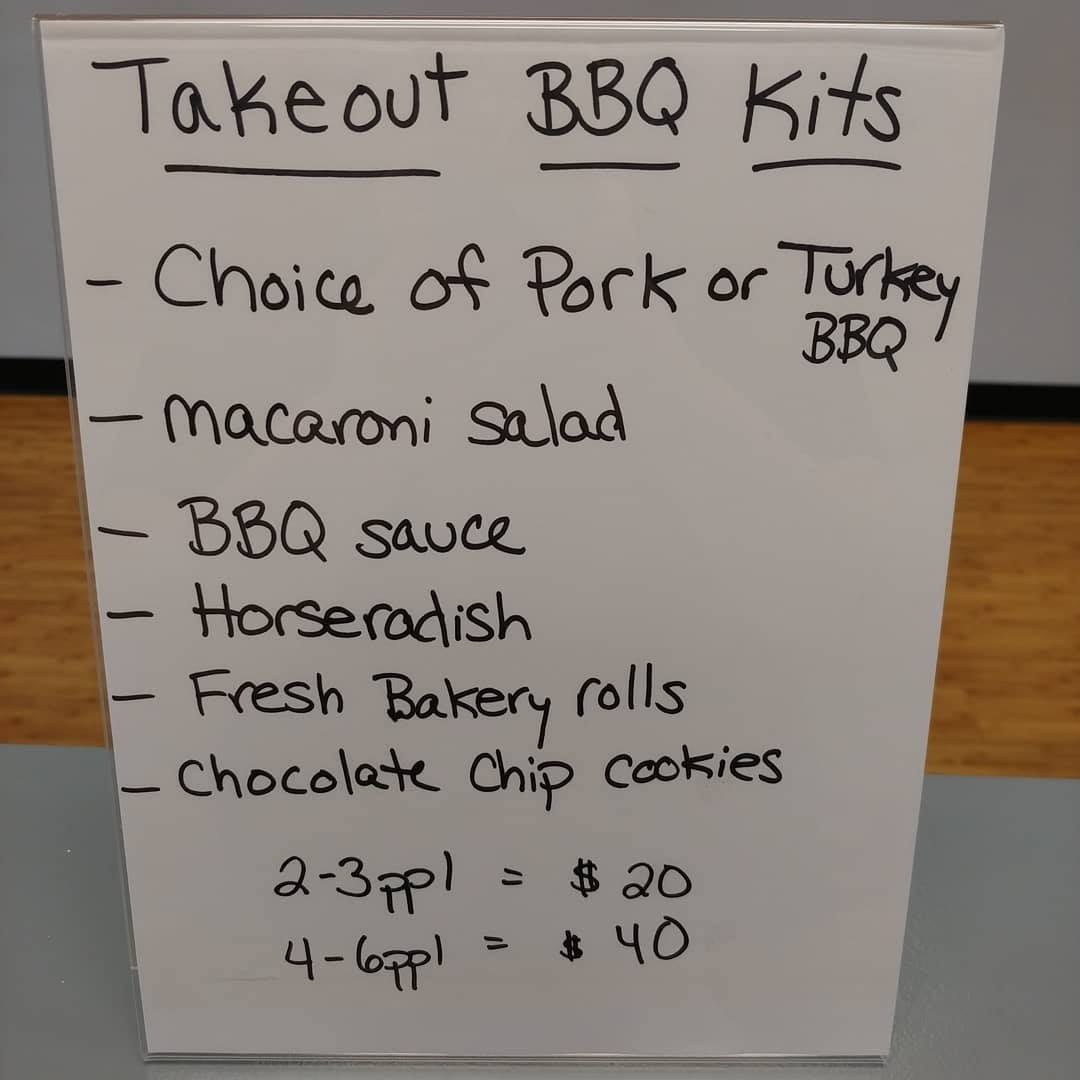 Takeout BBQ Kits
- Choice of Pork or Turkey
BBQ
- Macaroni Salad
- BBQ sauce
- Horseradish
- Fresh Bakery rolls
- Chocolate Chip Cookies
2-3ppl = $ 20
4-6ppl = $ 40